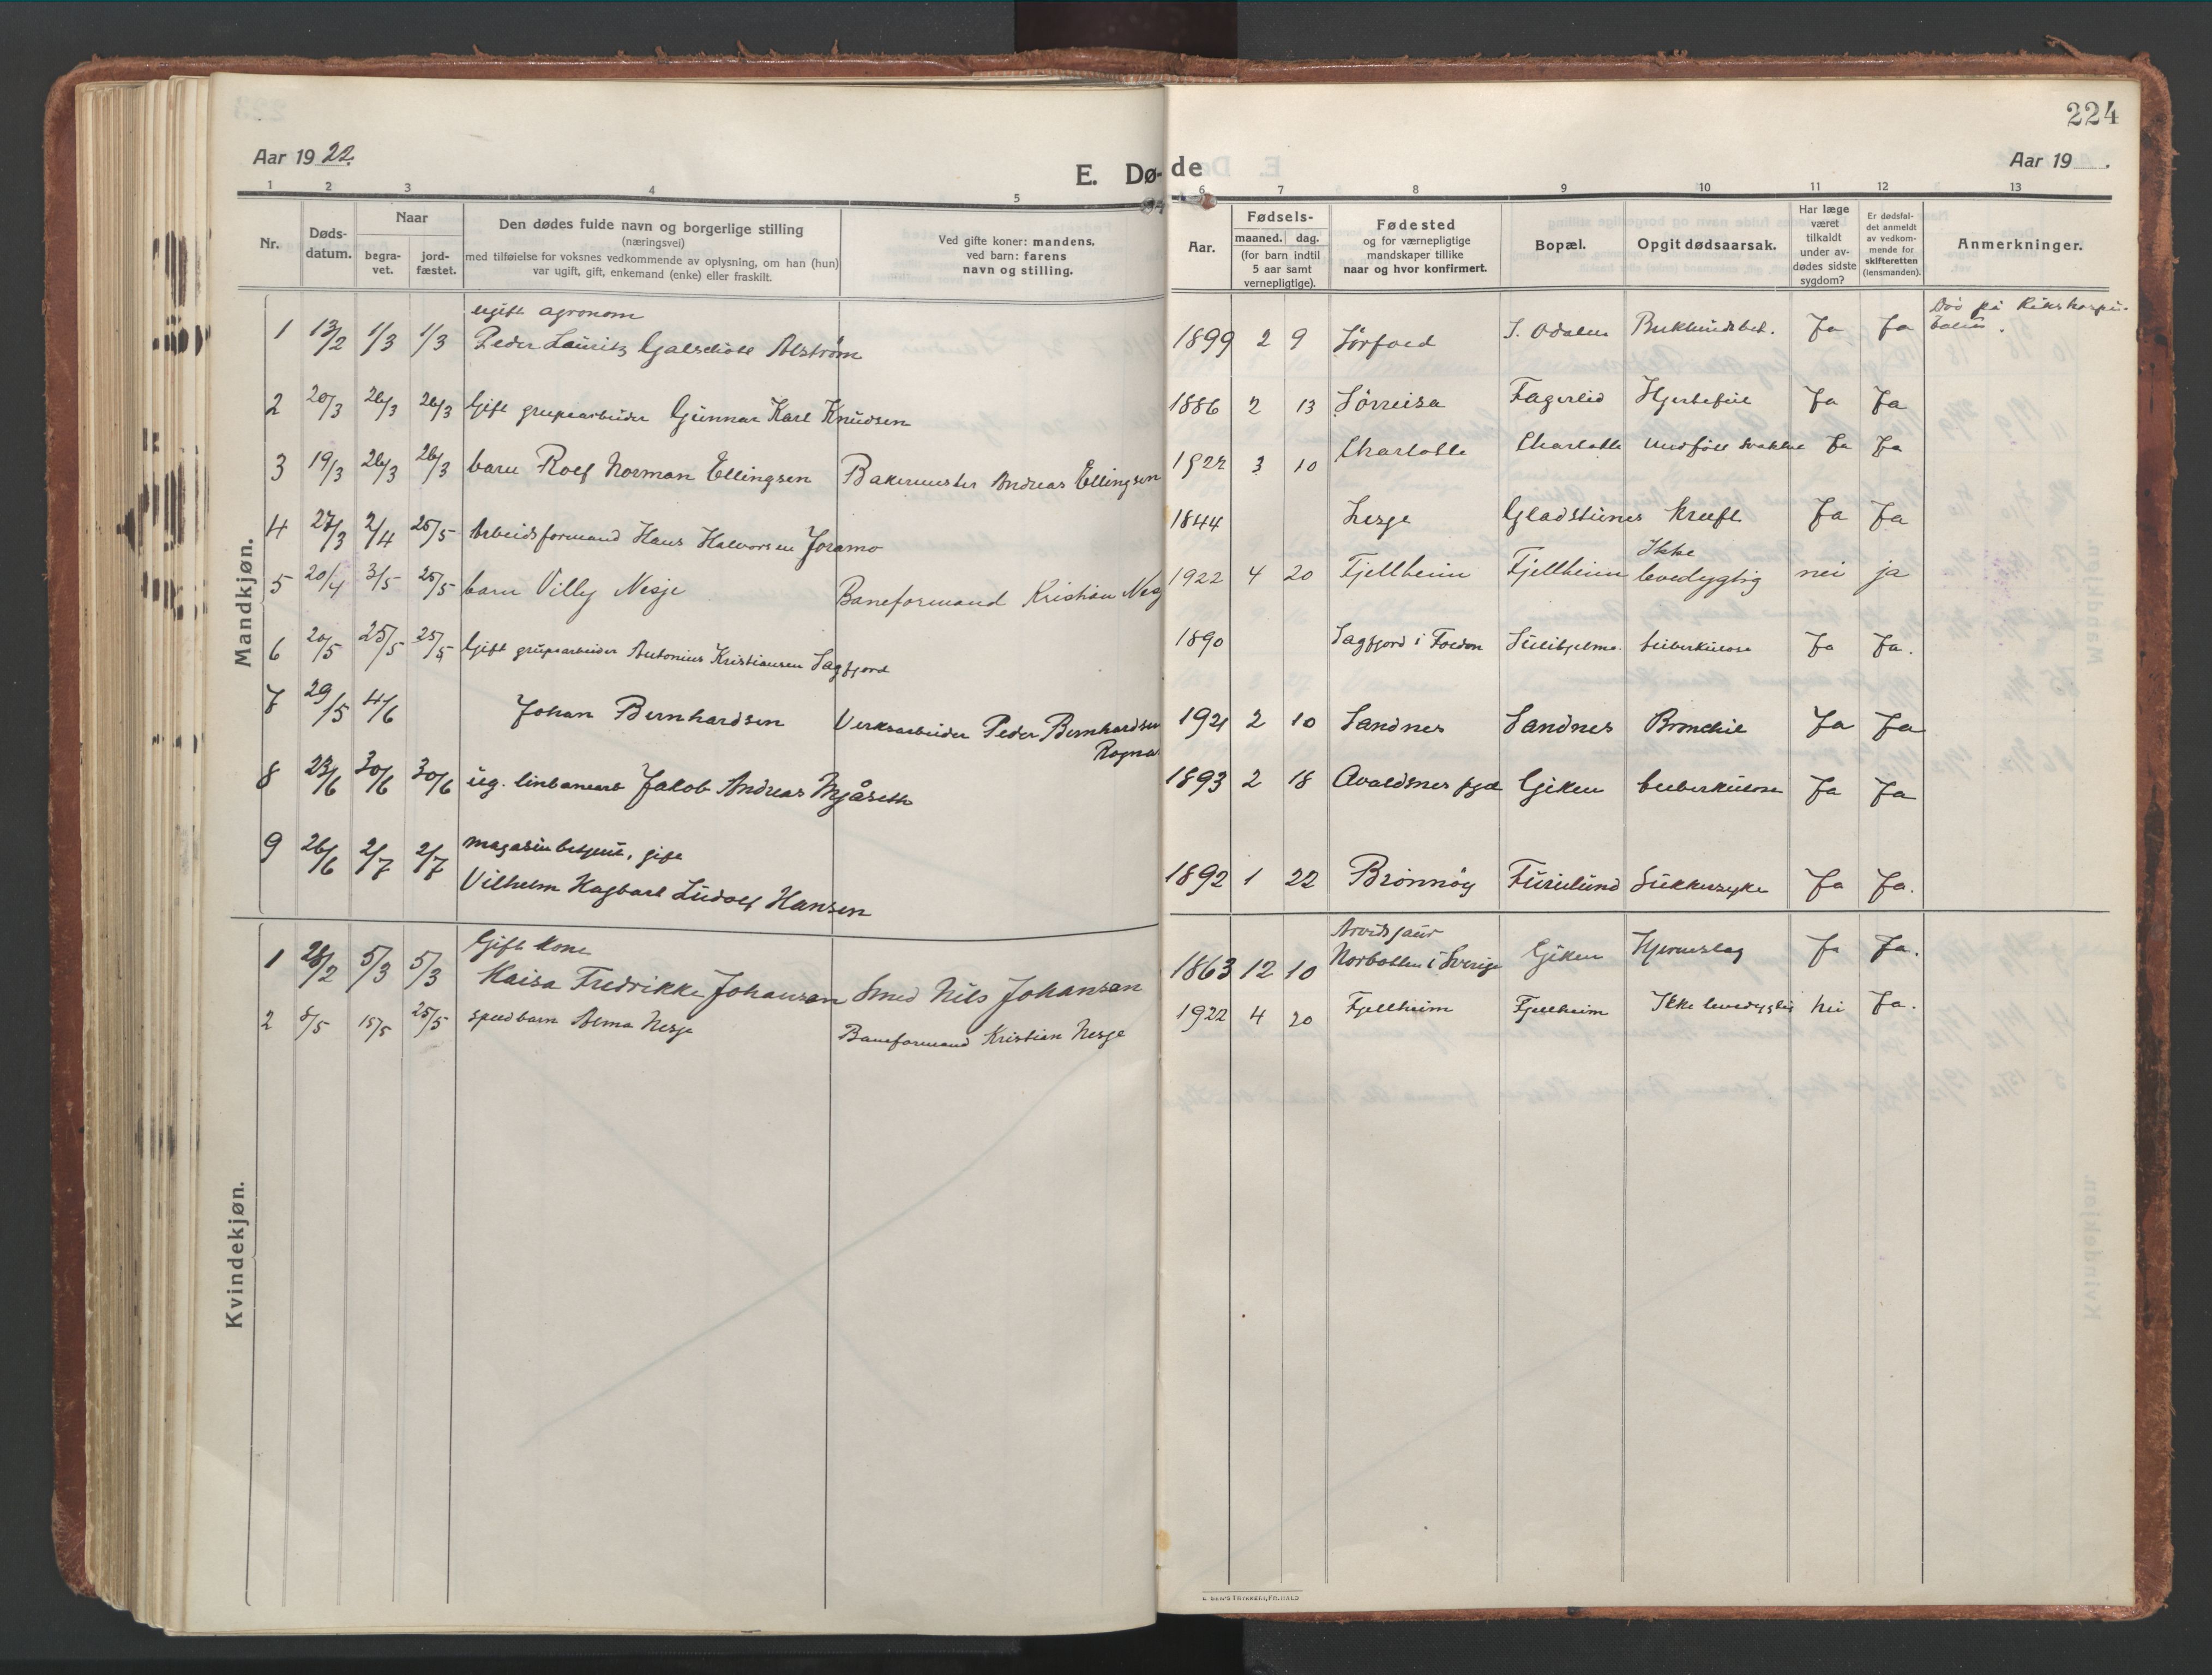 224
Aar 19 22.
E. Døde
Aar 19 .
1 2 3 4 5 6 7 8 9 10 11 12 13
Nr.
Døds-
datum.
Naar
begra-
vet.
jord-
fæstet.
Den dødes fulde navn og borgerlige stilling
(næringsvei)
med tilføielse for voksnes vedkommende av oplysning, om han (hun)
var ugift, gift, enkemand (enke) eller fraskilt.
Ved gifte koner: mandens,
ved barn: farens
navn og stilling.
Aar.
Fødsels-
maaned. dag.
(for barn indtil
5 aar samt
vernepligtige).
Fødested
og for værnepligtige
mandskaper tillike
naar og hvor konfirmert.
Bopæl.
Opgit dødsaarsak.
Har læge
været
tilkaldt
under av-
dødes sidste
sygdom?
Er dødsfal-
det anmeldt
av vedkom-
mende for
skifteretten
(lensmanden).
Anmerkninger.
Mandkjøn.
ugift agronom
1 13/2 1/3 1/3 Peder Lauritz Alström 1899 2 9 Sørfold S. Odalen Ja Ja Død på Rikshospi-
talet.
2 20/3 26/3 26/3 Gift grupearbeider Gunnar Karl Knudsen 1886 2 13 Sörreisa Fagerlid Hjertefeil Ja Ja
3 19/3 26/3 26/3 barn Rolf Norman Ellingsen Bakermester Andreas Ellingsen 1922 3 10 Charlotte Charlotte Medfödt svakhet Ja Ja
4 27/3 2/4 25/5 Arbeidsformand Hans Halvorsen Joramo 1844 Lesje Gladstunes Kreft Ja Ja
5 20/4 3/5 25/5 barn Villy Nesje Baneformand Kristian Nesj 1922 4 20 Fjellheim Fjellheim Ikke
levedygtig nei ja
6 20/5 25/5 25/5 Gift grupearbeider Antonius Kristiansen Sagfjord 1890 Sagfjord i Foldon Sulitjelma tuberkulose Ja Ja.
7 29/5 4/6 Johan Bernhardsen Verksarbeider Peder Bernhardsen
Rognan 1921 2 10 Sandnes Sandnes Bronchit Ja Ja
8 23/6 30/6 30/6 ug. linbanearb Jakob Andreas Mjåseth 1893 2 18 Avaldsnes pgd Giken tuberkulose Ja Ja
9 26/6 2/7 2/7 magasinbetjent, gift
Vilhelm Hagbart Ludolf Hansen 1892 1 22 Brönnöy Furulund Sukkersyke Ja Ja.
Kvindekjøn.
Gift kone Arvidsjaur
1 28/2 5/3 5/3 Kaisa Fredrikke Johansen Smed Nils Johansen 1863 12 10 Norbotten i Sverige Giken Hjerneslag Ja Ja.
2 5/5 15/5 25/5 spedbarn Alma Nesje Baneformand Kristian Nesje 1922 4 20 Fjellheim Fjellheim Ikke levedygtig nei Ja.